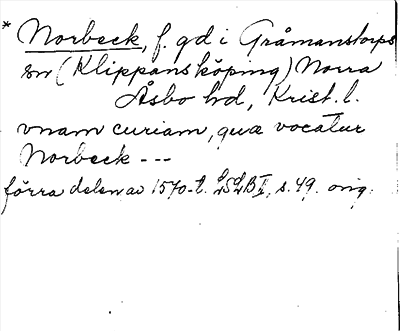 * Norbeck, f. gd i Gråmanstorps
sn (Klippans köping) Norra
Åsbo hd, Krist. l.
vnam curiam, quæ vocatur
Norbeck ---
förra delen av 1570-t. LSLB II, s. 49. orig.